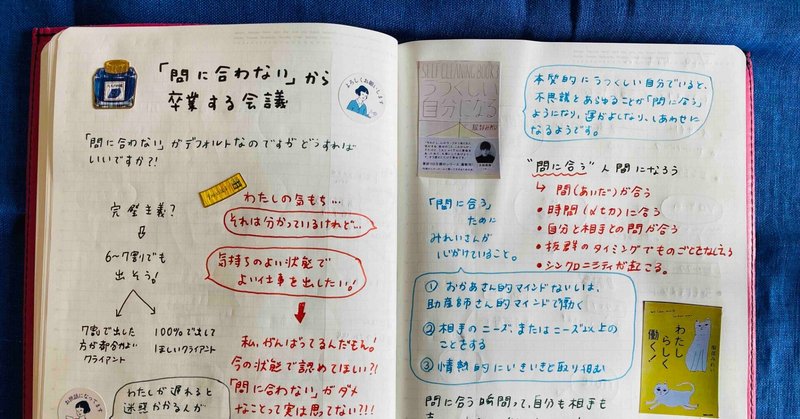 「間に合わない」から
卒業する会議
よろしくお願いします
「間に合わない」がデフォルトなのですがどうすれば
いいですか?!
完璧主義?
6〜7割でも
出そう!
7割で出した
方が都合よい
クライアント
100%で出して
ほしいクライアント
わたしが遅れると
迷惑かかる人が
わたしの気もち…
それは分かっているけれど…
気持ちのよい状態で
よい仕事を出したい!
私、がんばってるんだもん!
今の状態で認めてほしい?!
「間に合わない」がダメ
なことって実は思ってない?!!
お世話になってます
SELF CLEANING BOOKS
うつくしい
自分になる
服部みれい
本質的にうつくしい自分でいると、
不思議とあらゆることが「間に合う」
ようになり、運がよくなり、しあわせに
なるようです。
"間に合う"人間になろう
↳ 間(あいだ)が合う
• 時間(〆切)に合う
• 自分と相手との間が合う
• 抜群のタイミングでものごとをなしえる
• シンクロニシティが起こる。
「間に合う」
ために
みれいさんが
心がけていること。
① おかあさん的マインドないしは、
助産師さん的マインドで働く
② 相手のニーズ、またはニーズ以上の
ことをする
③ 情熱的にいきいきと取り組む
わたし
らしく
働く!
服部みれい
間に合う時間って、自分も相手も